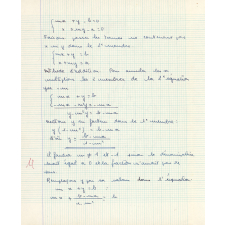 { mx + y - b = 0
{ x + my - a = 0
Faisons passer les termes ne contenant pas
x ni y dans le 2e membre.
{ mx + y = b
{ x + my = a
Méthode d'addition. Pour annuler les x
multiplions les 2 membres de la 2e équation
par - m
{ mx + y = b
{ - mx - m²y = - ma
y - m²y = b - ma
Mettons y en facteur dans le 1er membre :
y (1 - m²) = b - ma
d'où y = b - ma / 1 - m²
Il faudra m ≠ 1 et - 1 sinon le dénominateur
serait égal à 0 et la fraction n'aurait pas de
sens.
Remplaçons y par sa valeur dans l'équation
mx + y = b